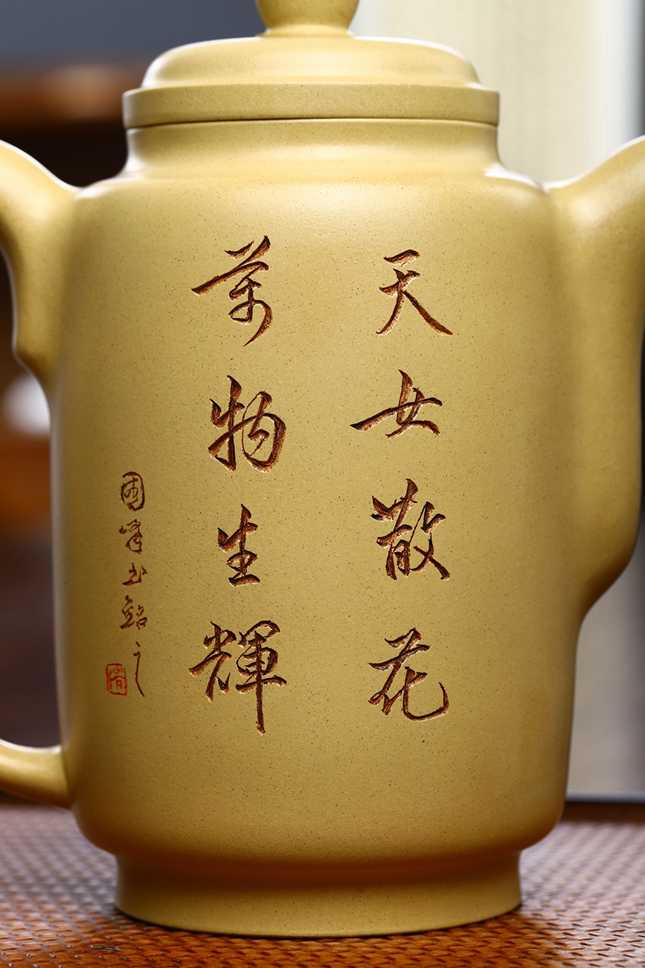 天女散花
萬物生輝
國峰书銘之